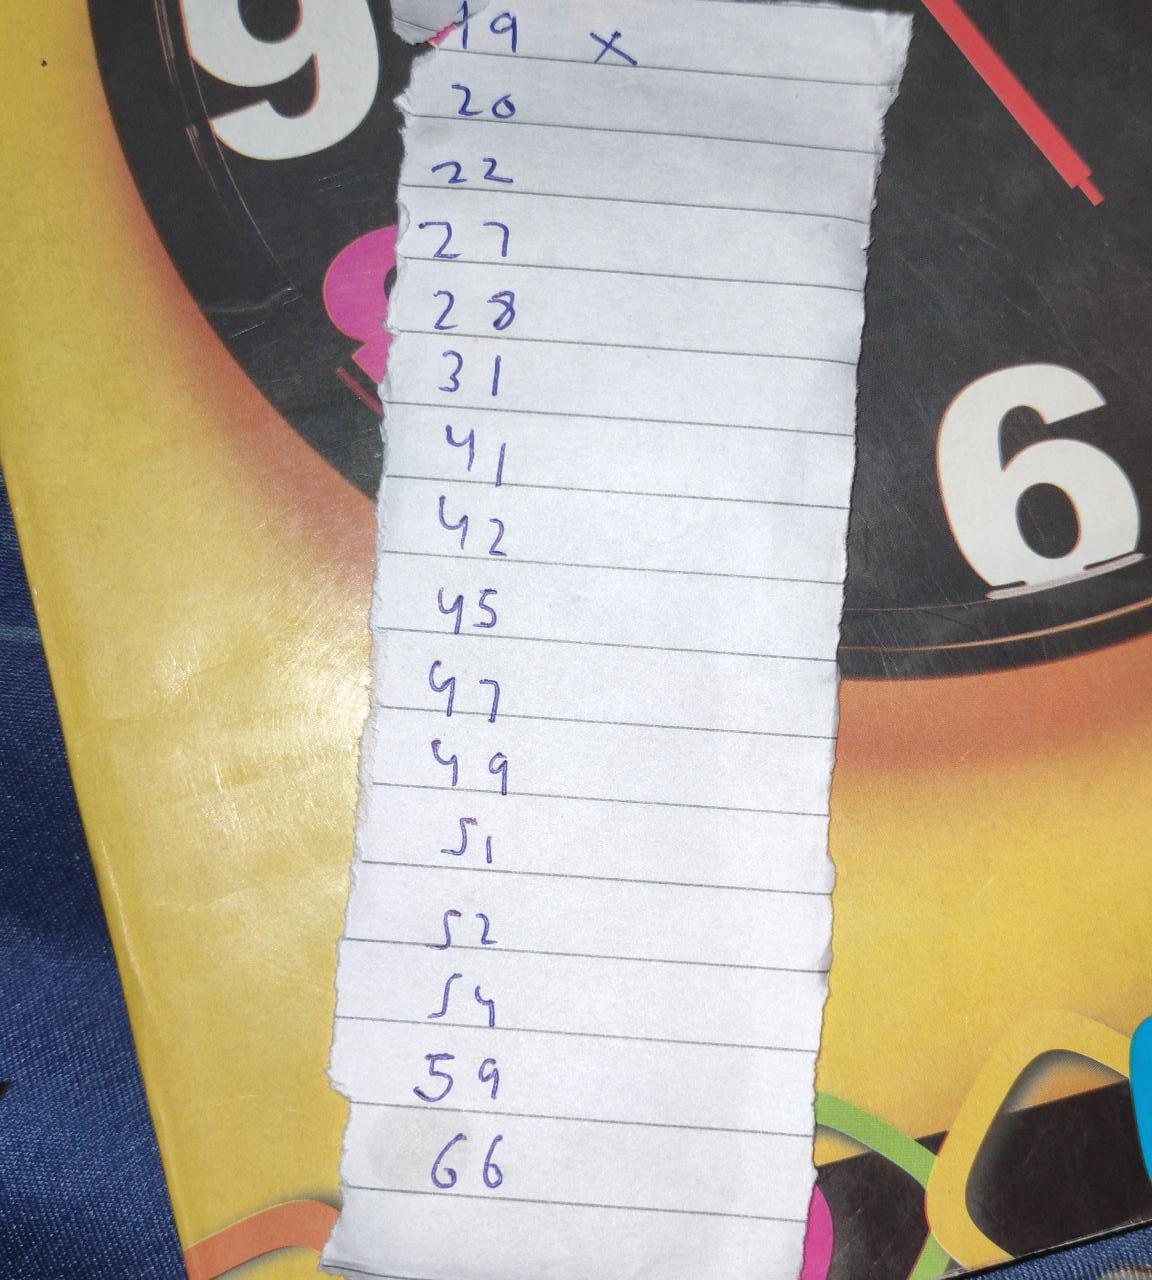 9
19 x
20
22
27
28
31
41
42
6
45
47
49
51
52
54
59
66